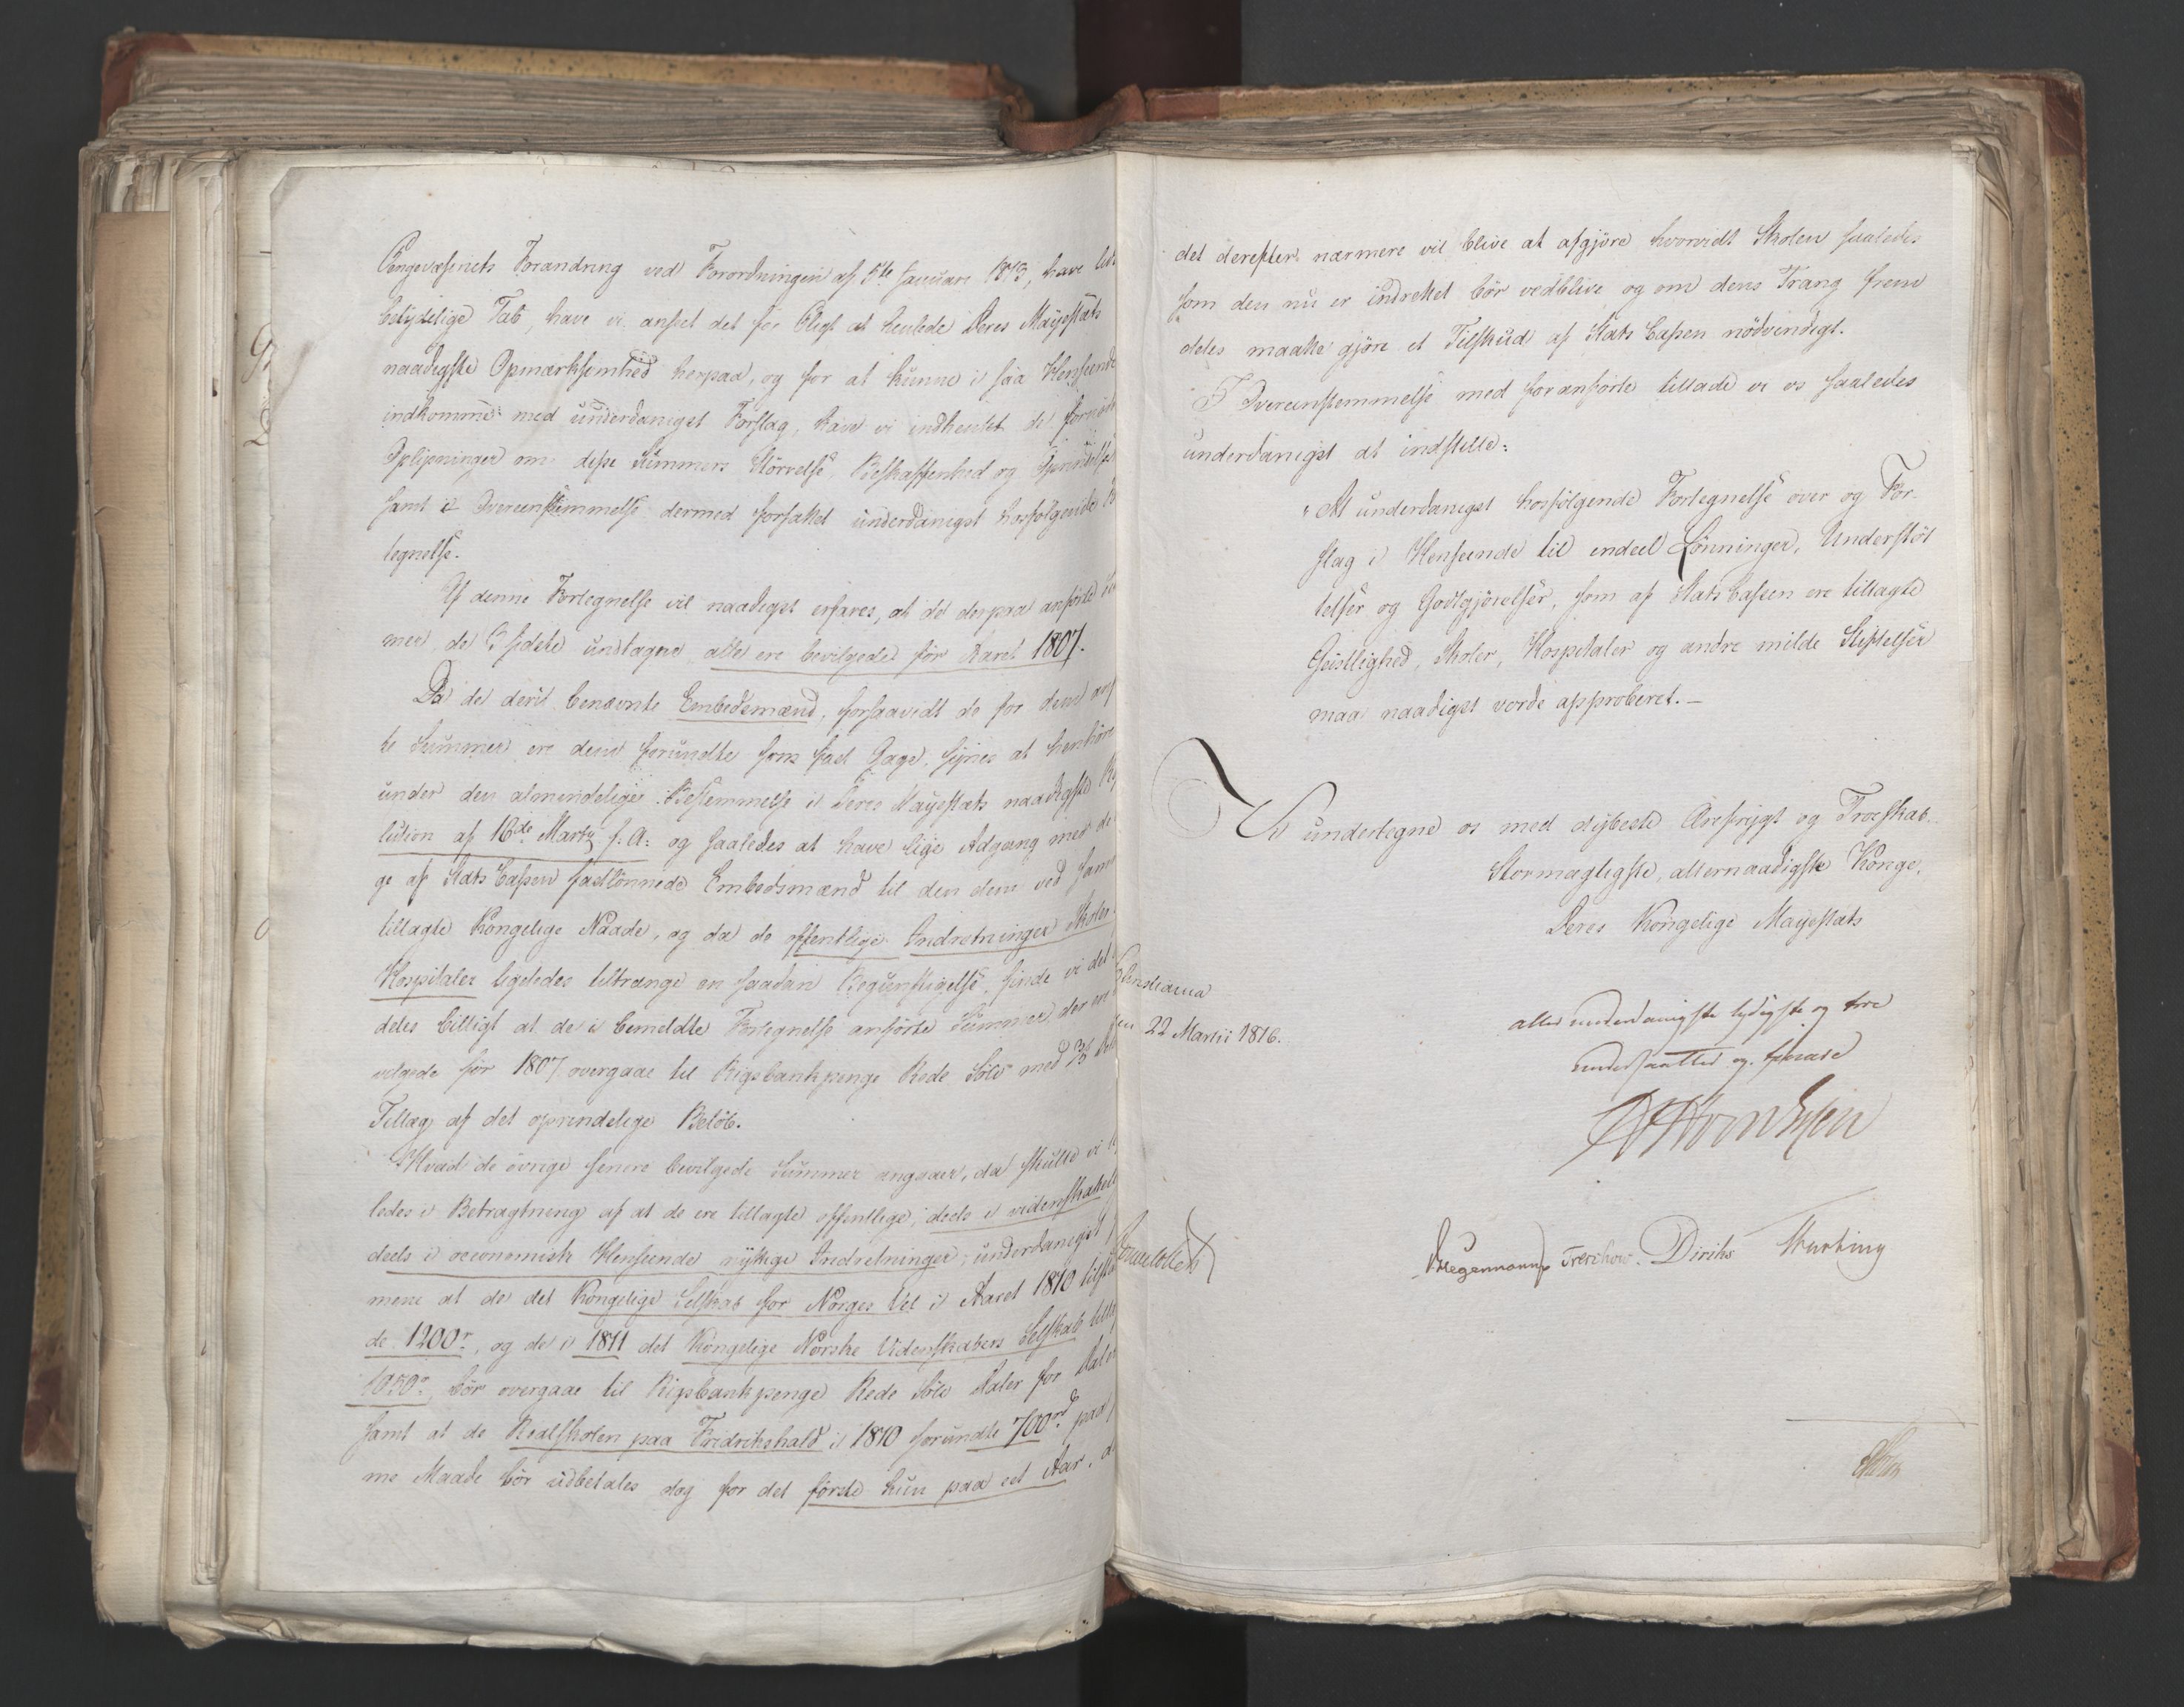 Pengevæsenets Forandring ved Forordningen af 5te Januari 1813, have lidt
betydelige Tab, have vi anseet det for Pligt at henlede Deres Mayestæts
naadigste Opmærksomhed herpaa, og for at kunne i saa Henseende
indkomme med underdanigst Forslag, have vi indhentet de fornødne
Oplysninger om disse Summers Størrelse, Beskaffenhed og Oprindelse
samt i Overeenstemmelse dermed forfattet underdanigst hosfølgende
tegnelse.
Af denne Fortegnelse vil naadigst erfares, at de derpaa anførte
mer, de 3 sidste undtagne, alle ere bevilgede før Aaret 1807.
Da de deri benævnte Embedsmænd, forsaavidt de for dem
te Summer ere dem forundte som fast Gage, synes at henhøre
under den almindelige Bestemmelse i Deres Mayestæts naadigste
lution af 16de Martz f. A. og saaledes at have lige Adgang med de
ge af Stats Cassen fastlønnede Embedsmænd til den dem ved
tillagte Kongelige Naade, og da de offentlige Indretninger Skoler
Hospitaler ligeledes tiltrænge en saadan Begunstigelse, finde vi det
deles billigt at de i bemeldte Fortegnelse anførte Summer der ere
vilgede før 1807 overgaae til Rigsbankpenge Rede Sølv med
Tillæg af det oprindelige Beløb.
Hvad de øvrige senere bevilgede Summer angaaer, da skulle vi
ledes i Betragtning af at de ere tillagte offentlige, deels i videnskabelig
deels i oeconomisk Henseende nyttige Indretninger, underdanigst
mene at de det Kongelige Selskab for Norges Vel i Aaret 1810
de 1200r, og de i 1811 det Kongelige Norske Videnskabers Selskab
1050r, bør overgaae til Rigsbankpenge Rede Sølv Daler for Daler
samt at de Realskolen paa Fridrikshald i 1810 forundte 700rd paa
me Maade bør udbetales dog for det første kun paa eet Aar, da
det derefter nærmere vil blive at afgjøre hvorvidt Skolen saaledes
som den nu er indrettet bør vedblive og om dens Trang frem
deles maatte gjøre et Tilskud af Stats Cassen nødvendigt.
I Overeenstemmelse med foranførte tillade vi os saaledes
underdanigst at indstille:
"At underdanigst hosfølgende Fortegnelse over og For-
slag i Henseende til endeel Lønninger, Understøt
telser og Godtgjørelser, som af Stats Cassen ere tillagte
Geistlighed, Skoler, Hospitaler og andre milde Stiftelser
maa naadigst vorde approberet.-
Vi undertegne os med dybeste Ærefrygt og Troeskab
Stormægtigste, allernaadigste Konge,
Deres Kongelige Mayestæts
Christiania
den 22 Martii 1816.
allerunderdanigste lydigste og troe
undersaatter og tjenere
Hegermann Treschow. Diriks